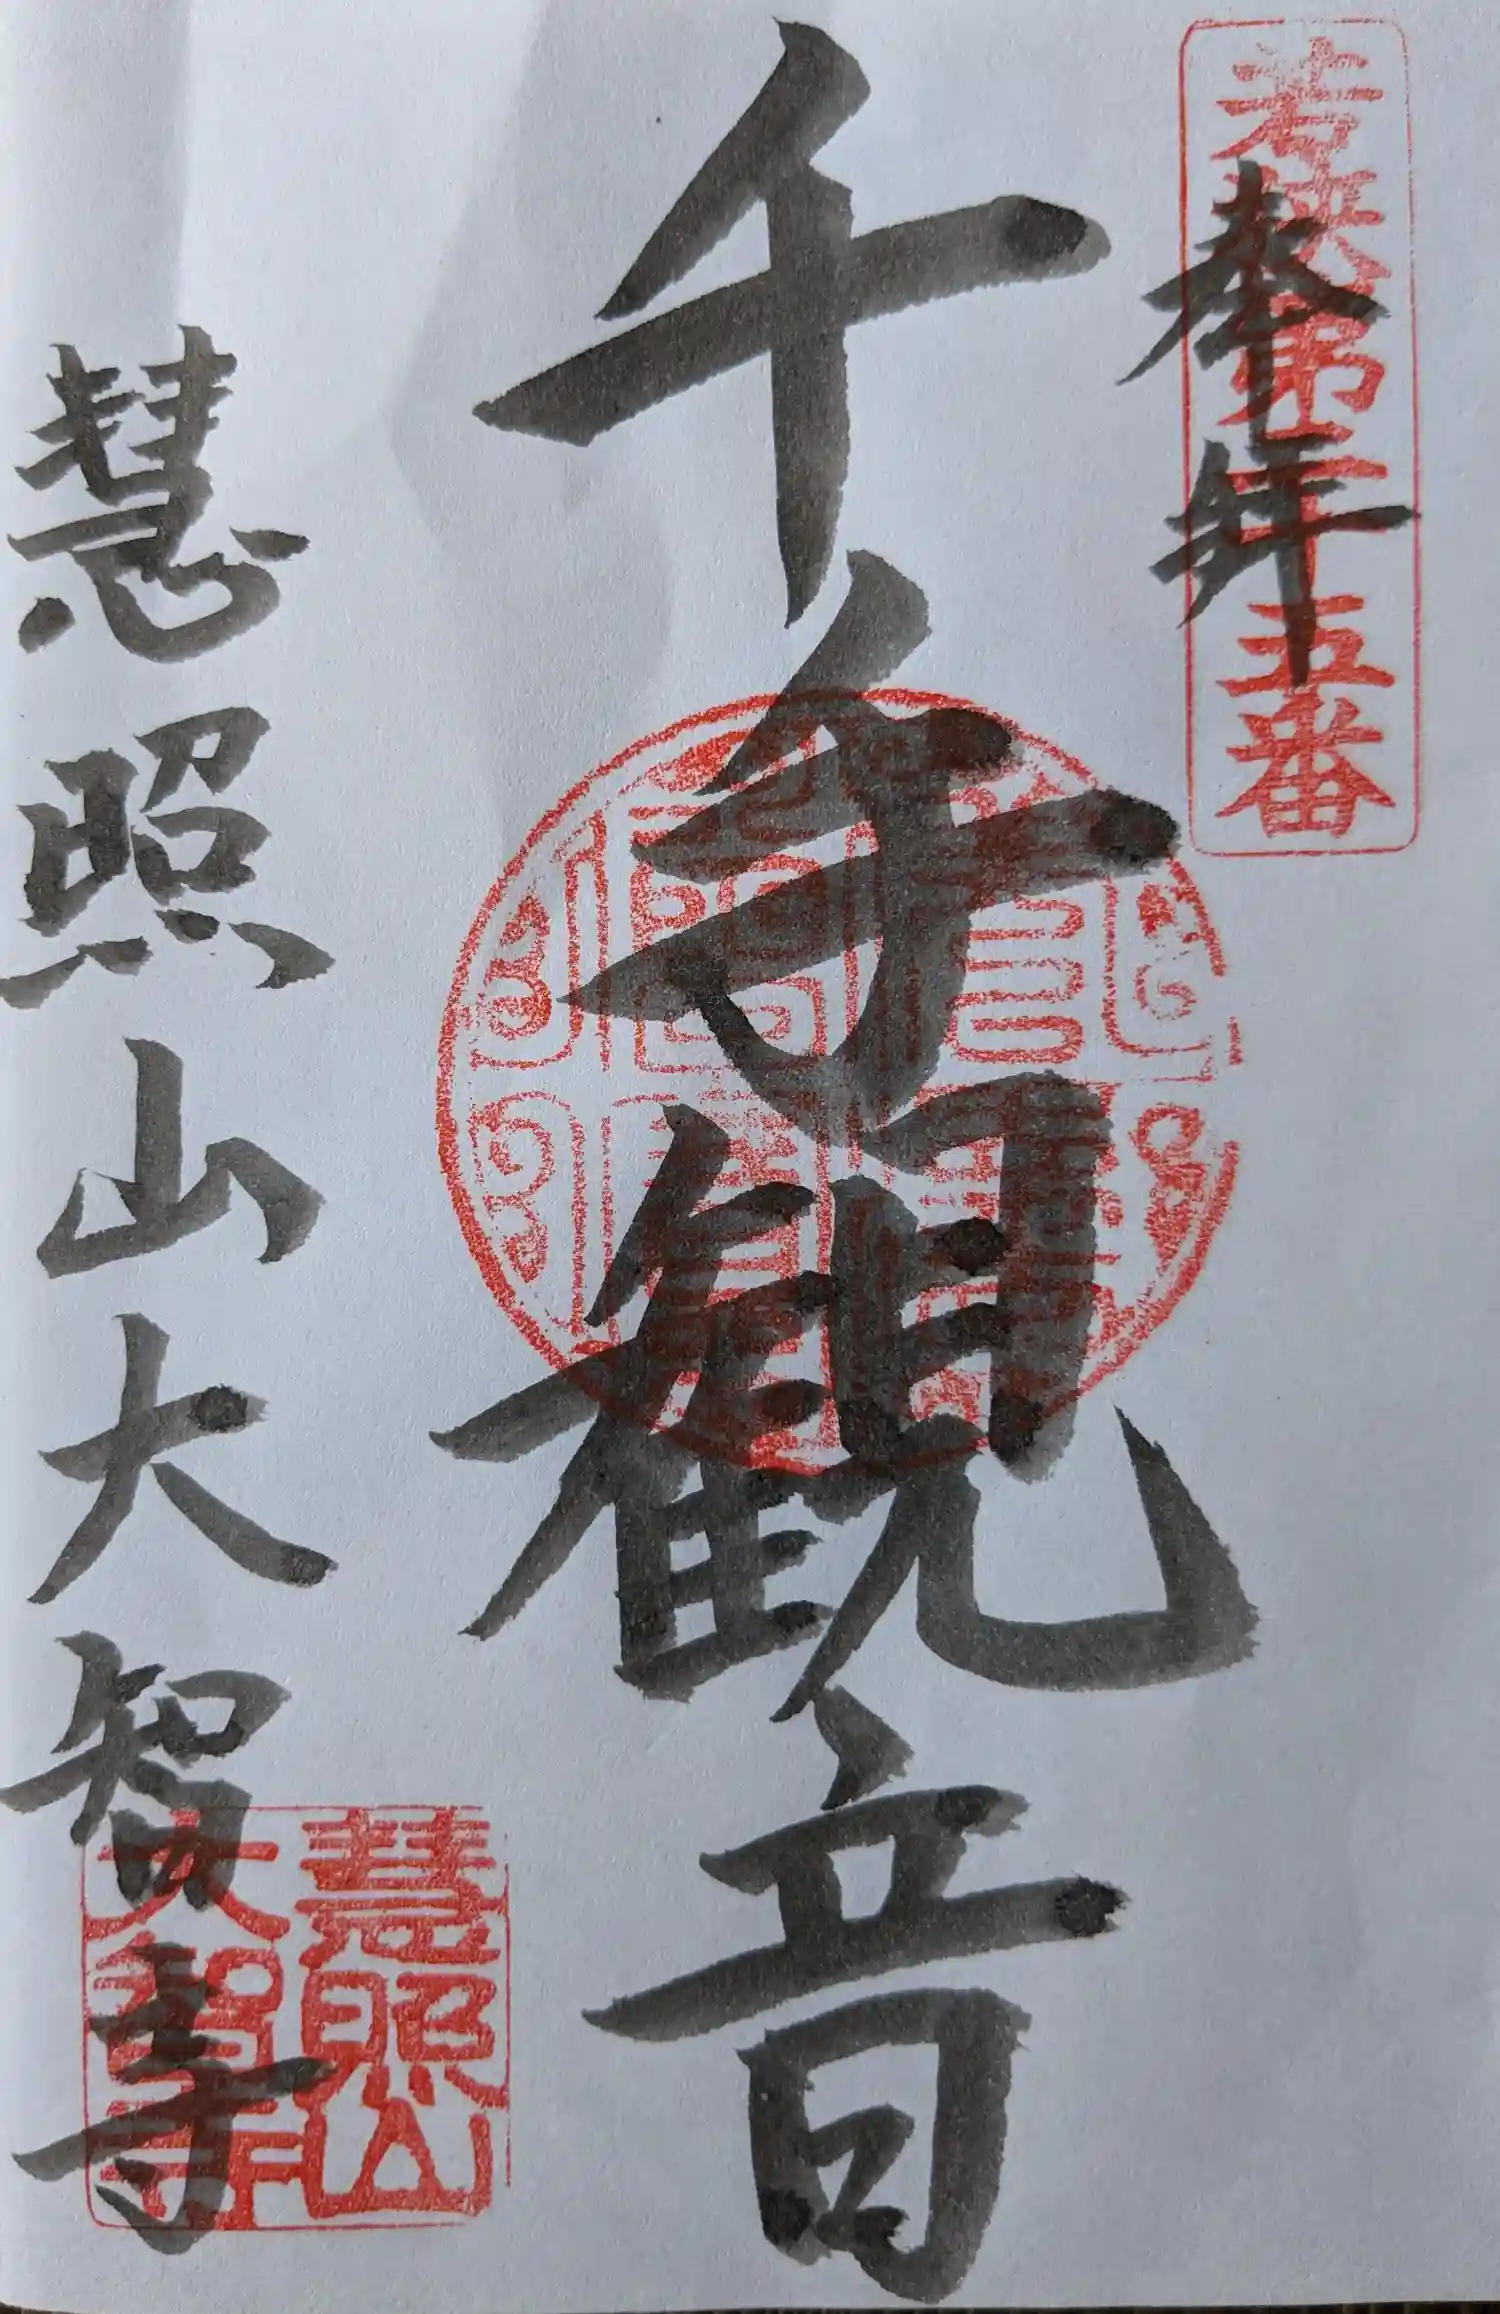 若狭第二十五番
奉拝
千手観音
慧照山大智寺
慧照山
大智寺